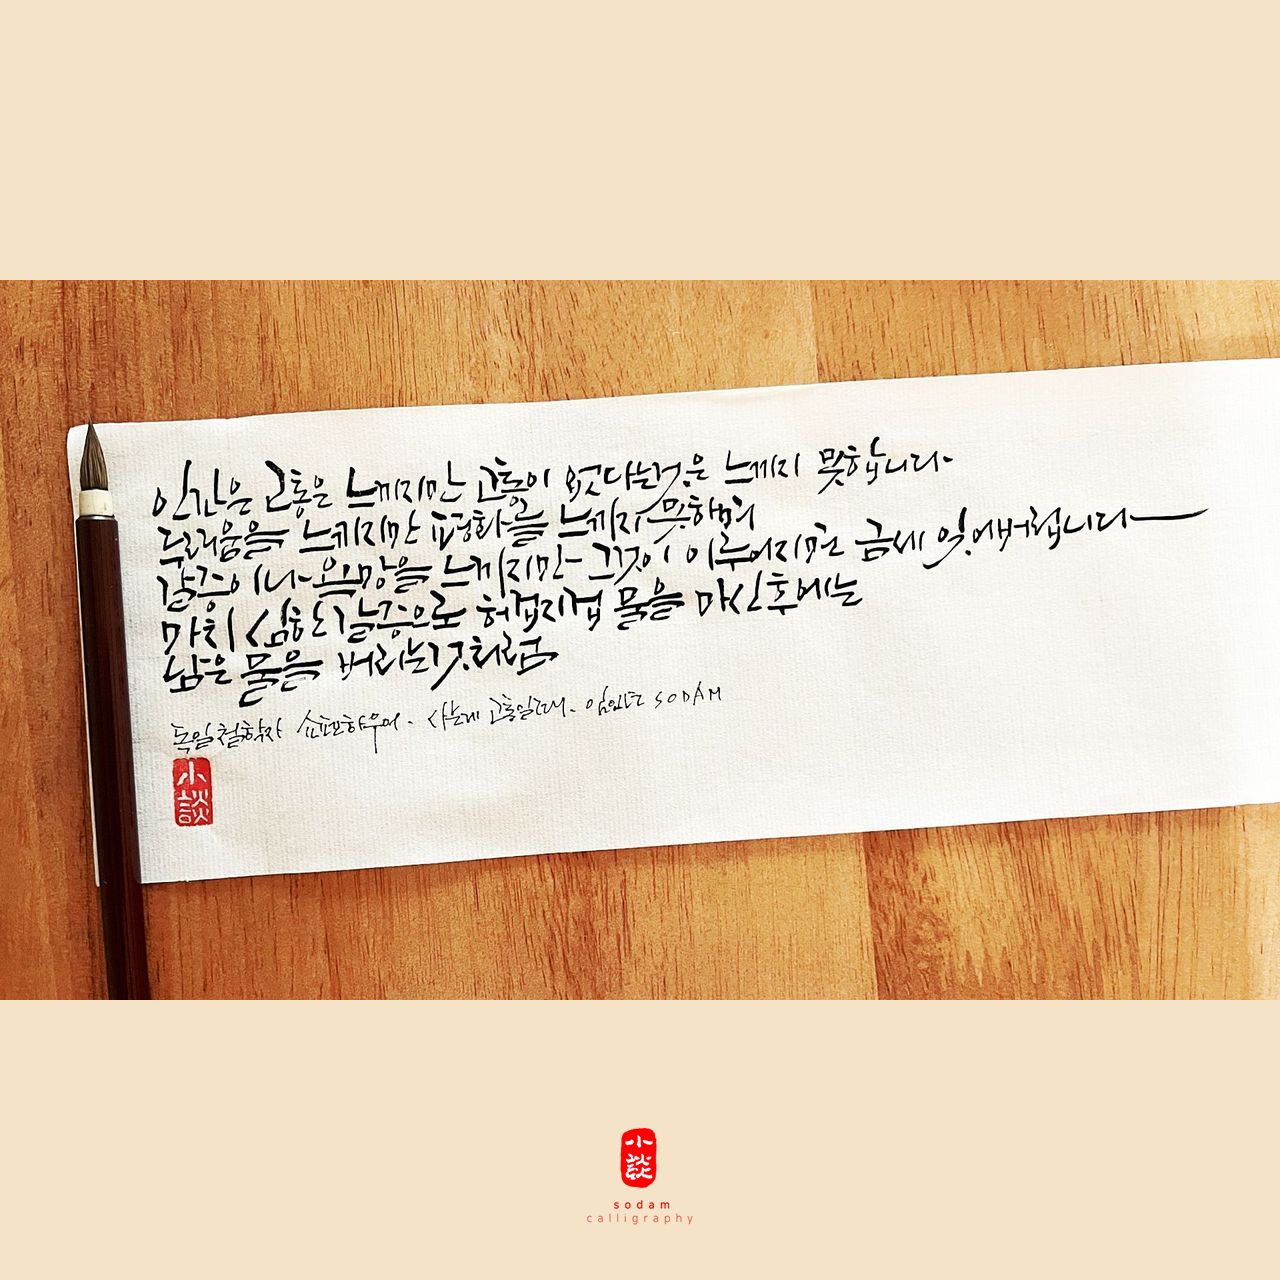 인간은 고통은 느끼지만 고통이 없다는것은 느끼지 못합니다.
두려움을 느끼지만 평화를 느끼지 못하며
갈증이나 욕망을 느끼지만 그것이 이루어지면 금세 잊어버립니다
마치 심한 갈증으로 허겁지겁 물을 마신후에는
남은 물을 버리는것처럼
독일철학자 쇼펜하우어. 사는게 고통일때. 임인년 SODAM
小談
小談
sodam
calligraphy